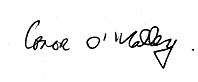 Conor O'Malley.